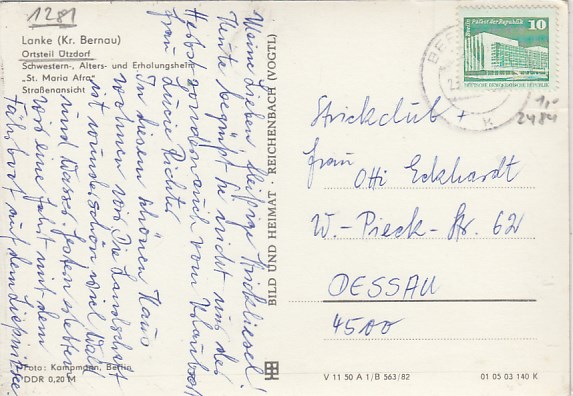 1281
Lanke (Kr. Bernau)
Ortsteil Ützdorf
Schwestern-, Alters- und Erholungsheim
„St. Maria Afra"
Straßenansicht
Meine lieben fleißige Strickliesel!
Heute begrüßt Sie nicht nur der
Herbst, sondern auch vom Urlaubsort
Frau Lucie Richter
In diesem schönen Haus
wohnen wir. Die Landschaft
ist wunderschön weil Wald
und Wasser
wir eine Fahrt mit dem
Fährboot auf dem Liepnitzsee.
Foto: Kampmann, Berlin
DDR 0,20 M
BILD UND HEIMAT · REICHENBACH (VOGTL)
Berlin, Palast der Republik
10
DEUTSCHE DEMOKRATISCHE REPUBLIK
1,-
2484
Strickclub +
Frau
Otti Eckhardt
W.-Pieck-Str. 62
DESSAU
4500
V 11 50 A 1/B 563/82
01 05 03 140 K